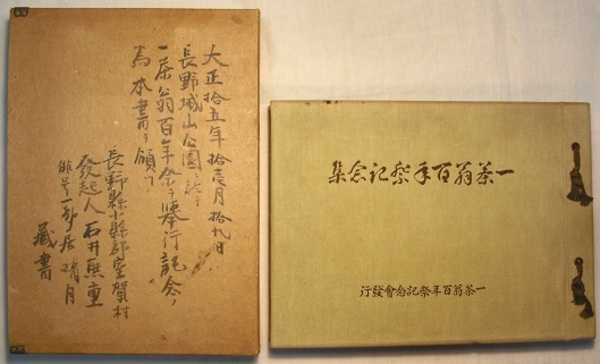 大正拾五年拾壱月拾九日、
長野城山公園ニ於テ
一茶翁百年祭ヲ擧行記念ノ
為本書ヲ領ス
長野縣小縣郡室賀村
發起人 石井熊重
俳号一 居晴月
藏書
一茶翁百年祭記念集
一茶翁百年祭記念會發行